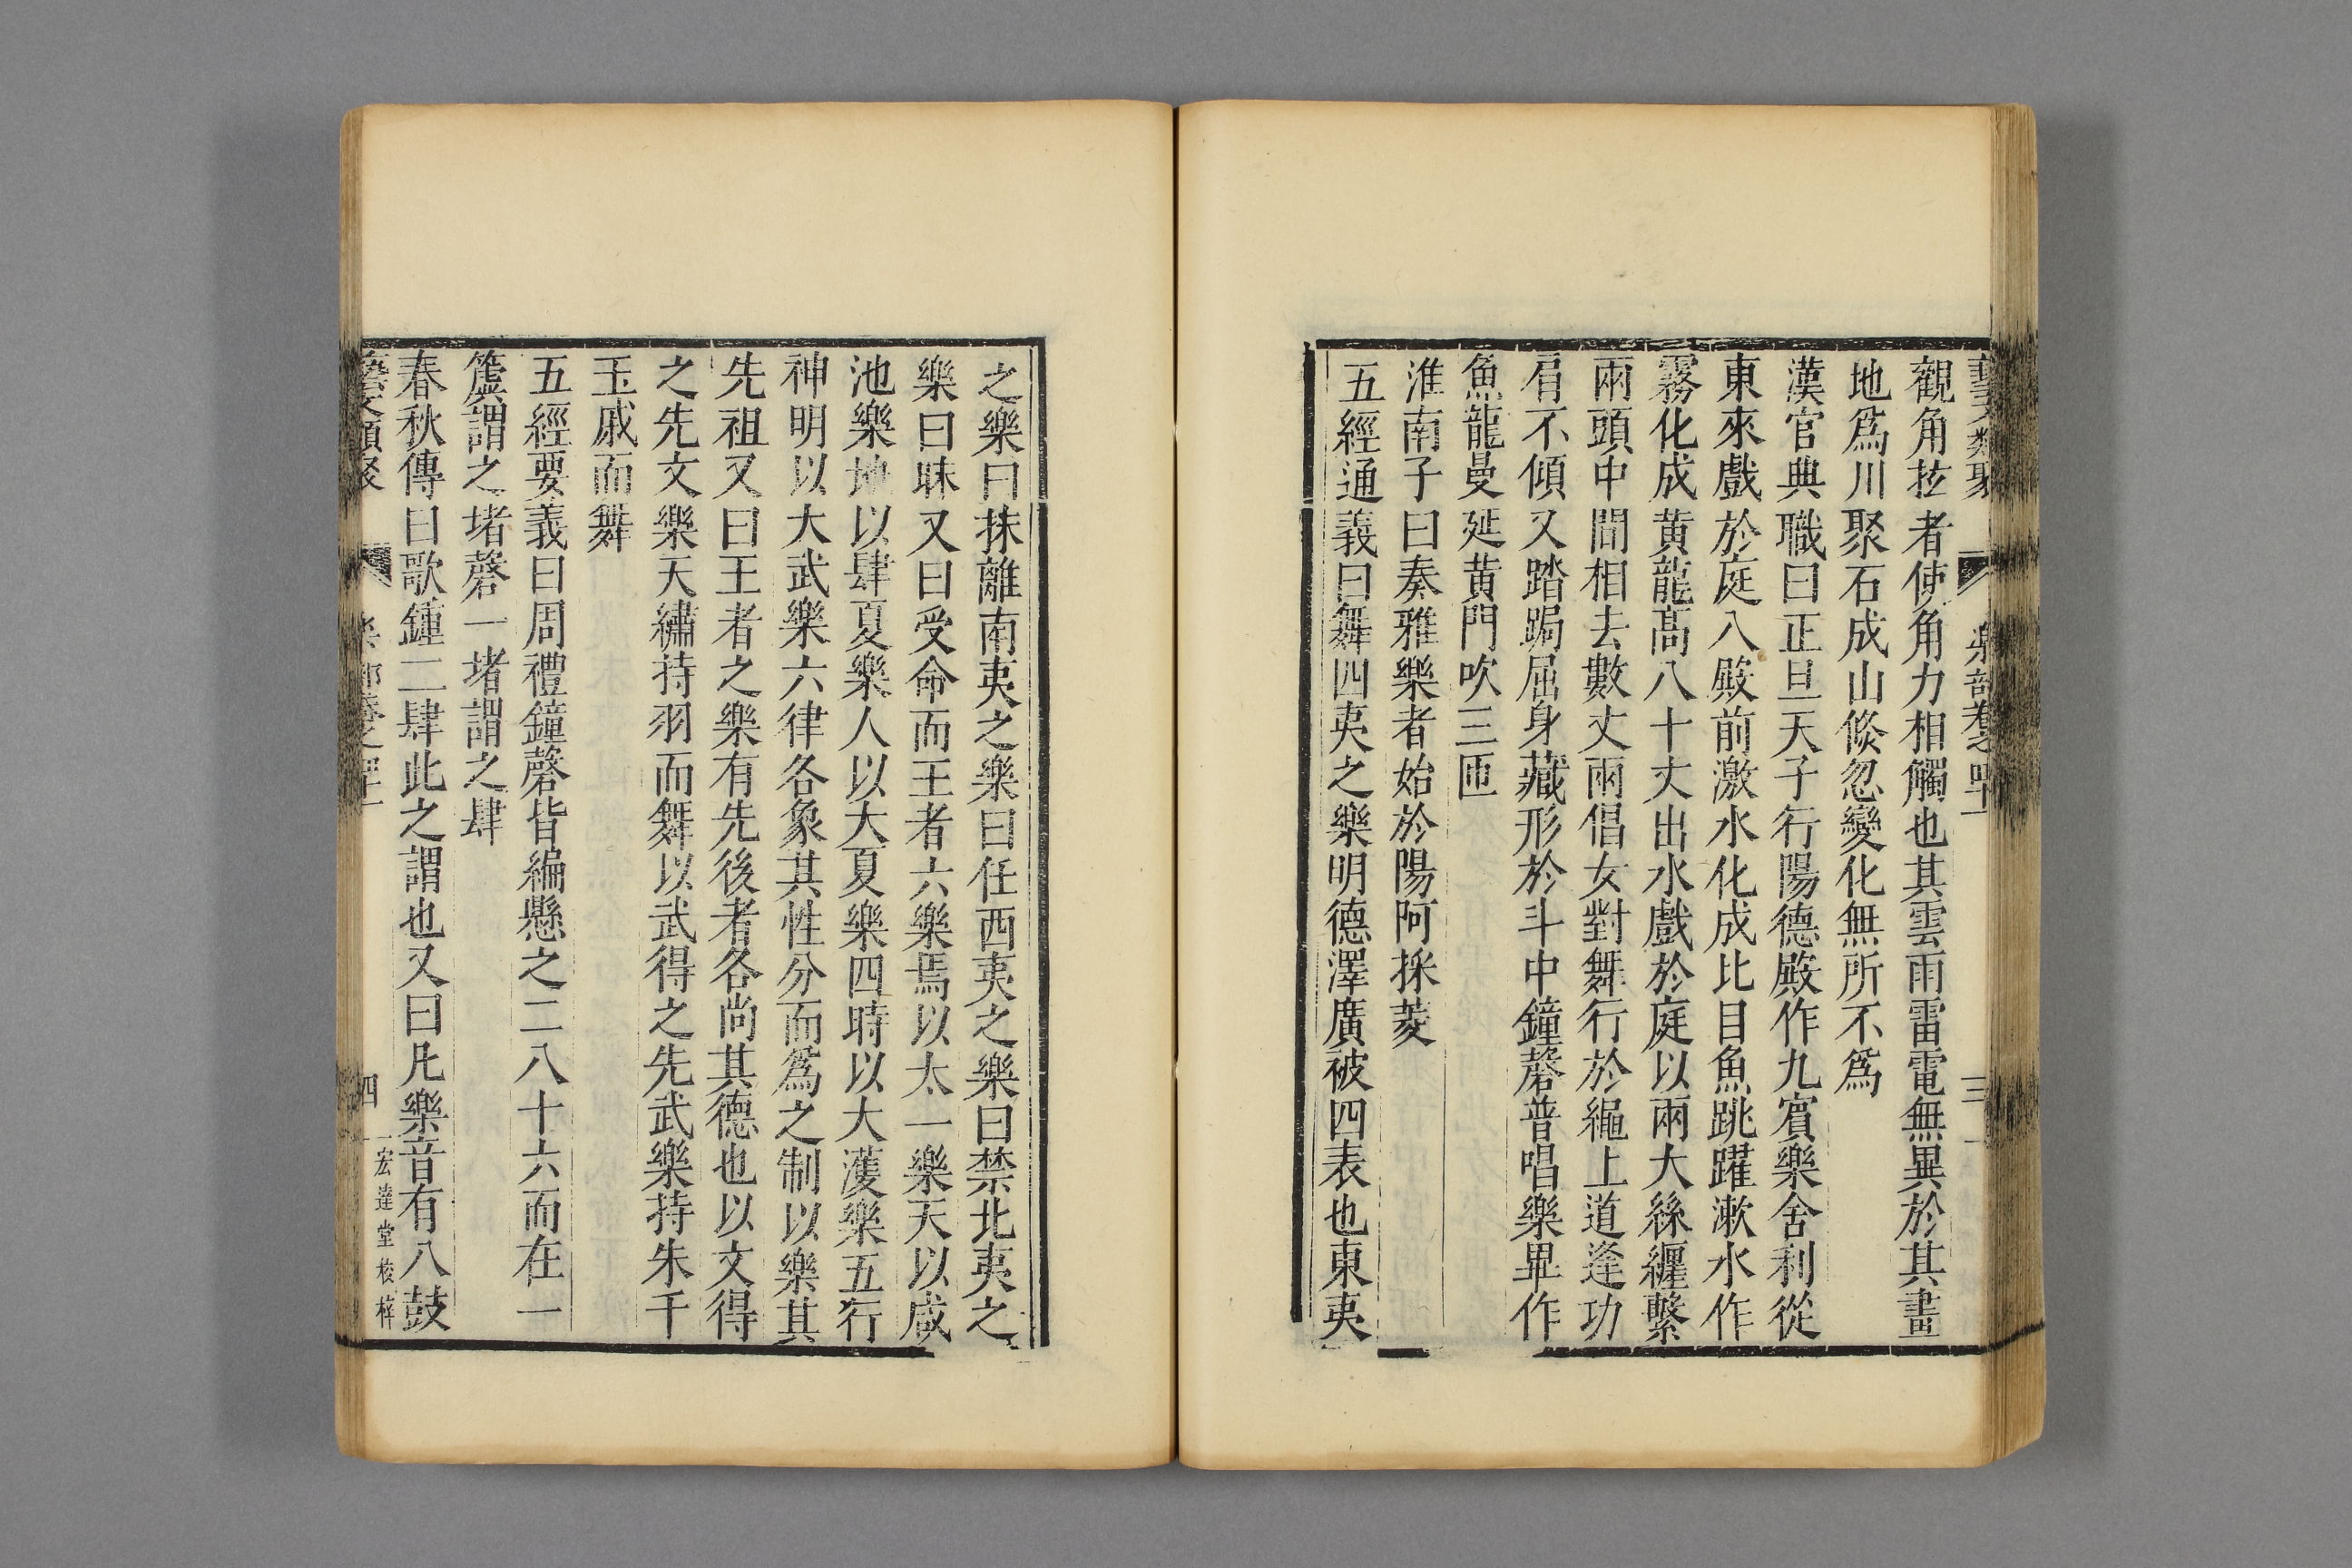 藝文類聚 樂部卷之四十一 三
觀角抵者使角力相觸也其雲雨雷電無異於其畫
地爲川聚石成山倐忽變化無所不爲
漢官典職曰正旦天子行陽德殿作九賓樂舍利從
東來戲於庭入殿前激水化成比目魚跳躍漱水作
霧化成黄龍高八十丈出水戲於庭以兩大絲纒繫
兩頭中間相去數丈兩倡女對舞行於繩上道逢功
肩不傾又踏跼屈身藏形於斗中鐘磬普唱樂畢作
魚龍曼延黄門吹三匝
淮南子曰奏雅樂者始於陽阿採菱
五經通義曰舞四夷之樂明德澤廣被四表也東夷
之樂曰抹離南夷之樂曰任西夷之樂曰禁北夷之
樂曰昧又曰受命而王者六樂焉以太一樂天以咸
池樂地以肆夏樂人以大夏樂四時以大濩樂五行
神明以大武樂六律各象其性分而爲之制以樂其
先祖又曰王者之樂有先後者各尚其德也以文得
之先文樂天繡持羽而舞以武得之先武樂持朱干
玉戚而舞
五經要義曰周禮鐘磬皆編懸之二八十六而在一
簴謂之堵磬一堵謂之肆
春秋傳曰歌鍾二肆此之謂也又曰凡樂音有八鼓
藝文類聚 樂部卷之四十一 四 宏達堂校梓